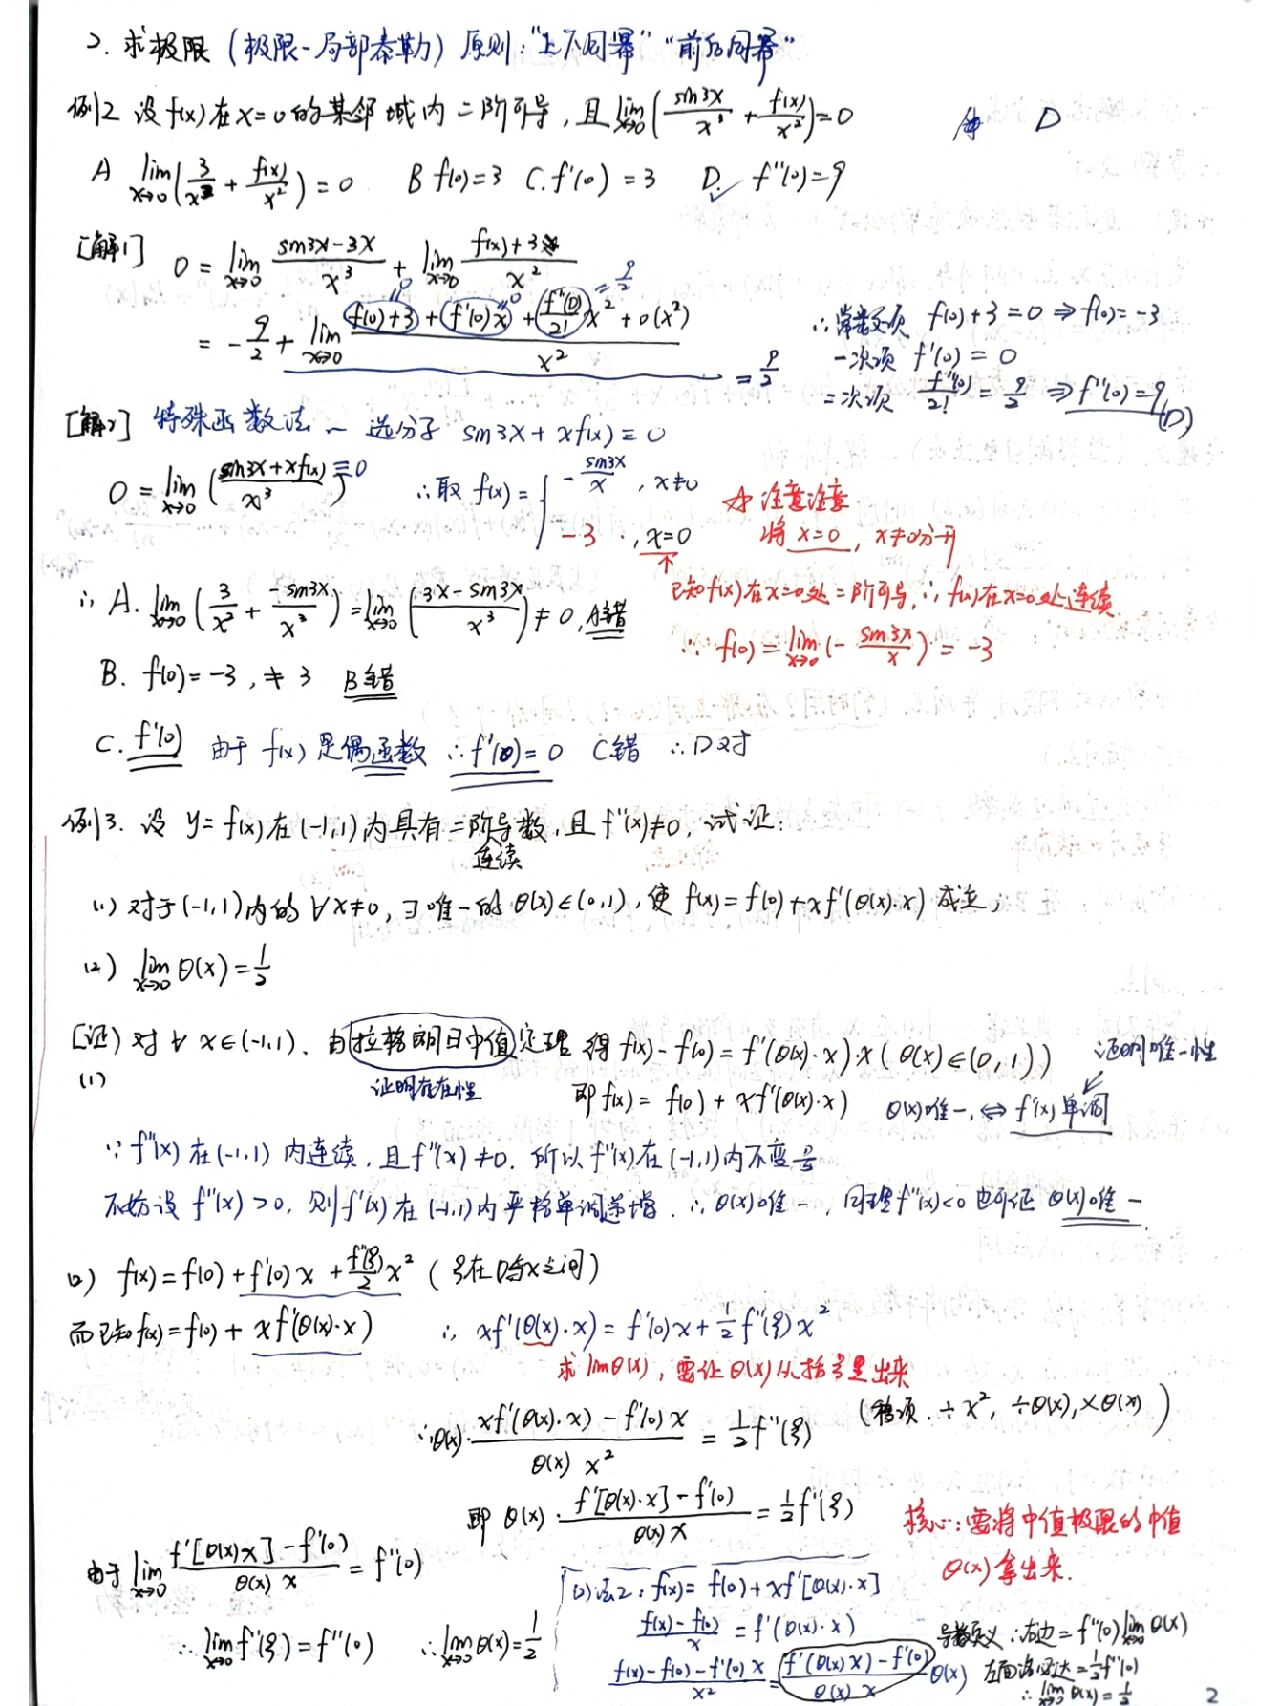 2. 求极限 (极限-局部泰勒) 原则: "上下同幂" "前后同幂"
例2 设 f(x) 在 x=0 的某邻域内二阶可导, 且 lim_{x→0} (sin3x/x³ + f(x)/x²) = 0 D
A lim_{x→0} (3/x² + f(x)/x²) = 0 B f(0)=3 C. f'(0) = 3 D. ✓ f''(0)=9
[解1] 0 = lim_{x→0} (sin3x-3x)/x³ + lim_{x→0} (f(x)+3)/x²
= -9/2 + lim_{x→0} (f(0)+3 + f'(0)x + f''(0)/2! x² + o(x²))/x² = 9/2
∴ 常数项 f(0)+3=0 ⇒ f(0)=-3
一次项 f'(0) = 0
二次项 f''(0)/2! = 9/2 ⇒ f''(0)=9 (D)
[解2] 特殊函数法 — 选分子 sin3x + xf(x) = 0
0 = lim_{x→0} ((sin3x+xf(x))/x³) ≡0 ∴取 f(x) = { -sin3x/x , x≠0
-3 , x=0
注意注意
将 x=0, x≠0分开
已知f(x)在x=0处二阶可导, ∴ f(x)在x=0处连续
∴ f(0) = lim_{x→0} (- sin3x/x) = -3
∴ A. lim_{x→0} (3/x² + -sin3x/x³) = lim_{x→0} ((3x-sin3x)/x³) ≠ 0, A错
B. f(0) = -3, ≠ 3 B错
C. f'(0) 由于 f(x) 是偶函数 ∴ f'(0) = 0 C错 ∴D对
例3. 设 y=f(x)在(-1,1)内具有二阶导数, 且 f''(x)≠0, 试证:
连续
(1) 对于(-1,1)内的 ∀x≠0, ∃唯一的 θ(x)∈(0,1), 使 f(x) = f(0)+xf'(θ(x)·x) 成立,
(2) lim_{x→0} θ(x) = 1/2
[证] 对∀ x∈(-1,1), 由拉格朗日中值定理 得 f(x)-f(0) = f'(θ(x)·x)·x (θ(x)∈(0,1)) 证明唯一性
(1) 证明存在性 即 f(x) = f(0) + xf'(θ(x)·x) θ(x)唯一 ⇔ f'(x)单调
∵ f''(x) 在(-1,1) 内连续, 且 f''(x) ≠0. 所以 f''(x)在(-1,1)内不变号
不妨设 f''(x) >0, 则f'(x)在(-1,1)内严格单调递增. ∴ θ(x)唯一, 同理f''(x)<0也可证 θ(x)唯一
(2) f(x) = f(0) + f'(0)x + f''(ξ)/2 x² (ξ在0与x之间)
而已知f(x) = f(0) + xf'(θ(x)·x) ∴ xf'(θ(x)·x) = f'(0)x + 1/2 f''(ξ)x²
求limθ(x), 需让θ(x)从括号里出来
∴ θ(x)· (xf'(θ(x)·x) - f'(0)x)/(θ(x) x²) = 1/2 f''(ξ) (移项. ÷x², ÷θ(x), ×θ(x))
即 θ(x)· (f'[θ(x)·x] - f'(0))/(θ(x) x) = 1/2 f''(ξ)
核心: 需将中值极限的中值
θ(x)拿出来.
由于 lim_{x→0} (f'[θ(x)x] - f'(0))/(θ(x) x) = f''(0)
∴ lim_{x→0} f''(ξ) = f''(0) ∴ lim_{x→0} θ(x) = 1/2
(2)法2: f(x) = f(0) + xf'[θ(x)·x]
(f(x)-f(0))/x = f'(θ(x)·x)
(f(x)-f(0)-f'(0)x)/x² = (f'(θ(x)x) - f'(0))/(θ(x) x) θ(x)
导数定义: 右边 = f''(0) lim_{x→0} θ(x)
左面洛必达 = 1/2 f''(0)
∴ lim_{x→0} θ(x) = 1/2
2